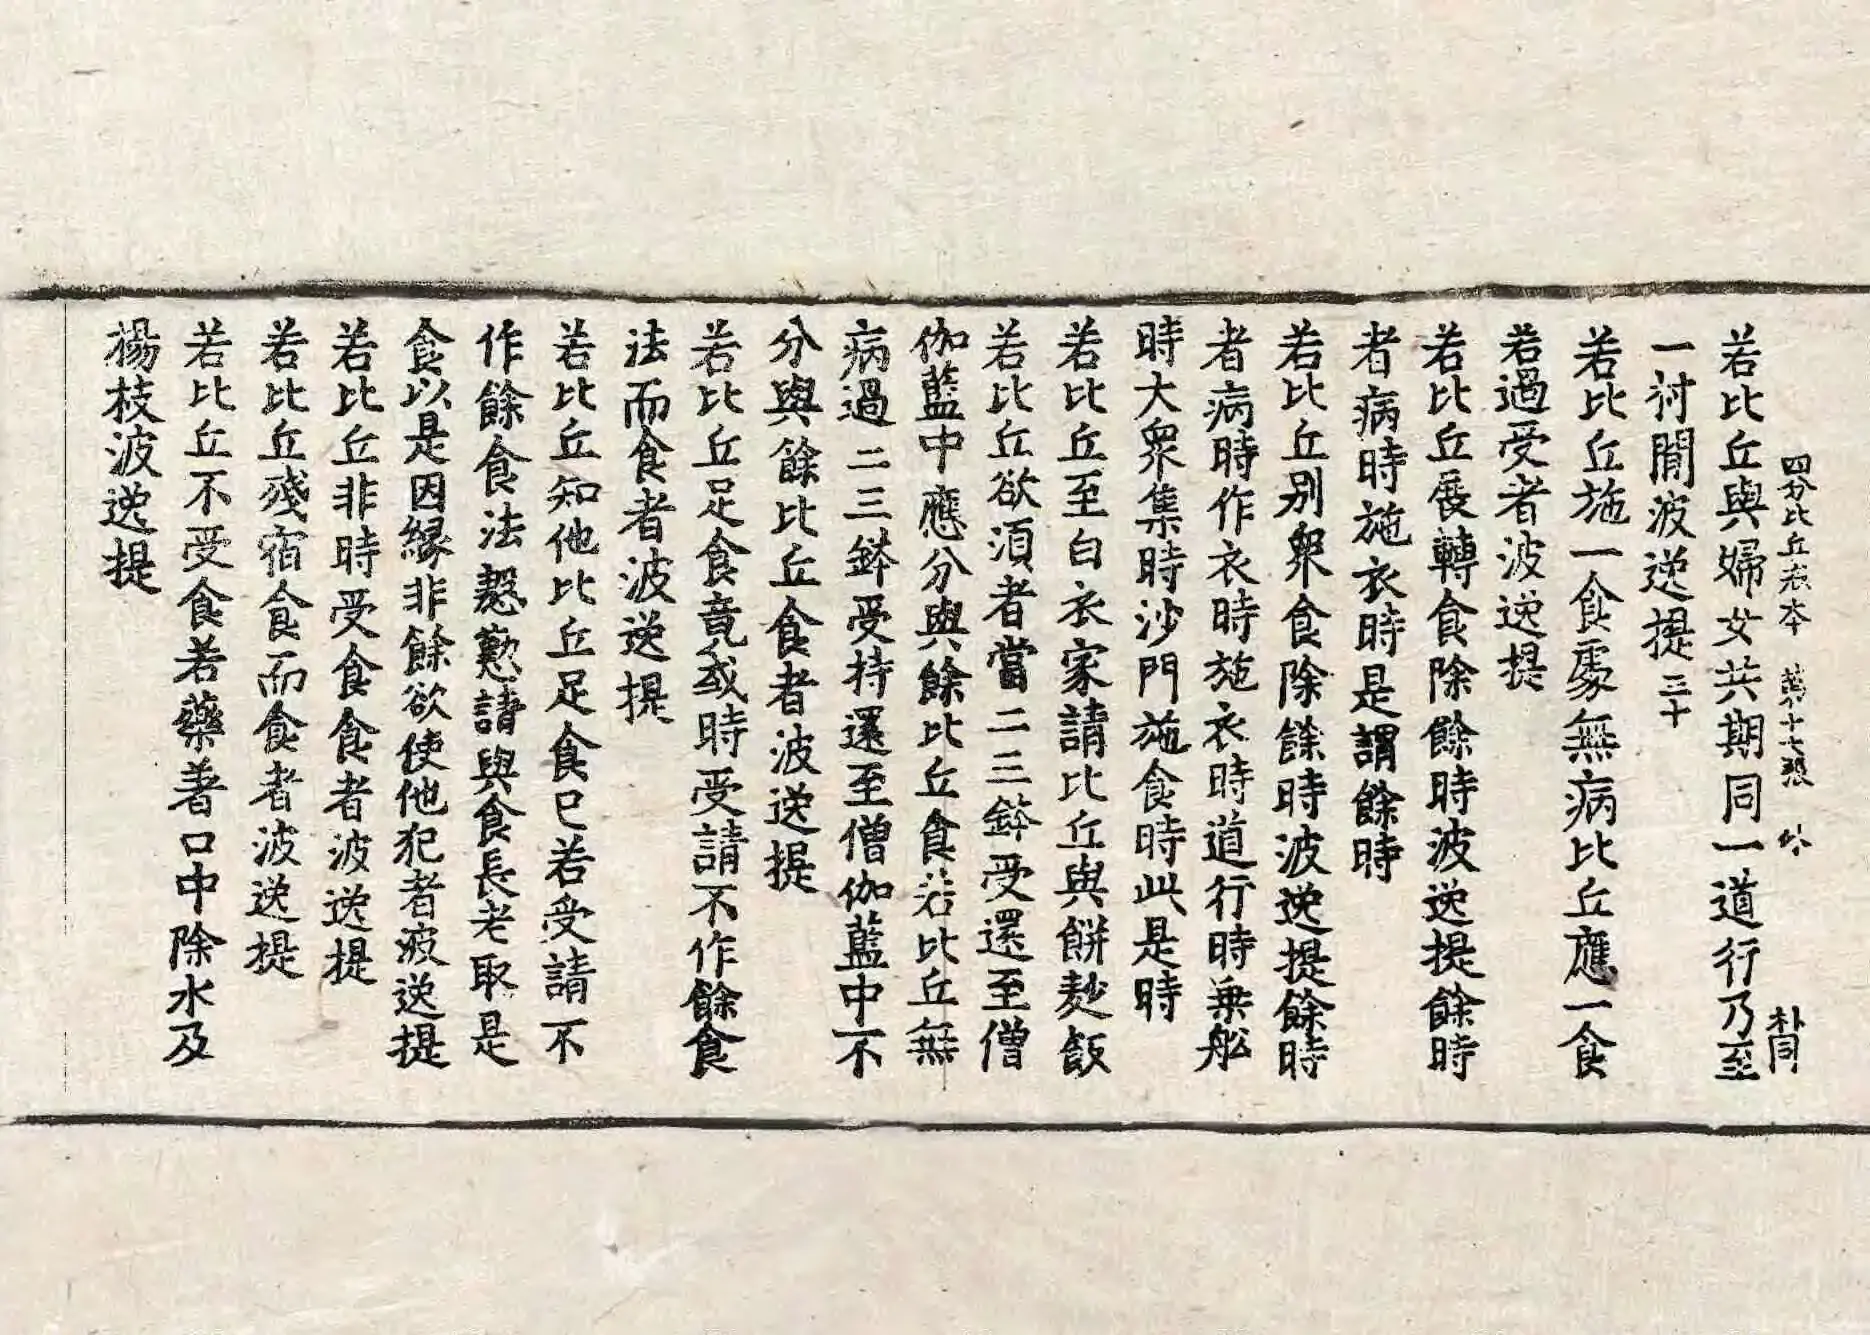 四分比丘戒本 第十七張 竹
朴同
若比丘與婦女共期同一道行乃至
一村間波逸提 三十
若比丘施一食處無病比丘應一食
若過受者波逸提
若比丘展轉食除餘時波逸提餘時
者病時施衣時是謂餘時
若比丘別衆食除餘時波逸提餘時
者病時作衣時施衣時道行時乗舩
時大衆集時沙門施食時此是時
若比丘至白衣家請比丘與餅麨飯
若比丘欲湏者當二三鉢受還至僧
伽藍中應分與餘比丘食若比丘無
病過二三鉢受持還至僧伽藍中不
分與餘比丘食者波逸提
若比丘足食竟或時受請不作餘食
法而食者波逸提
若比丘知他比丘足食已若受請不
作餘食法慇懃請與食長老取是
食以是因緣非餘欲使他犯者波逸提
若比丘非時受食食者波逸提
若比丘殘宿食而食者波逸提
若比丘不受食若藥著口中除水及
楊枝波逸提